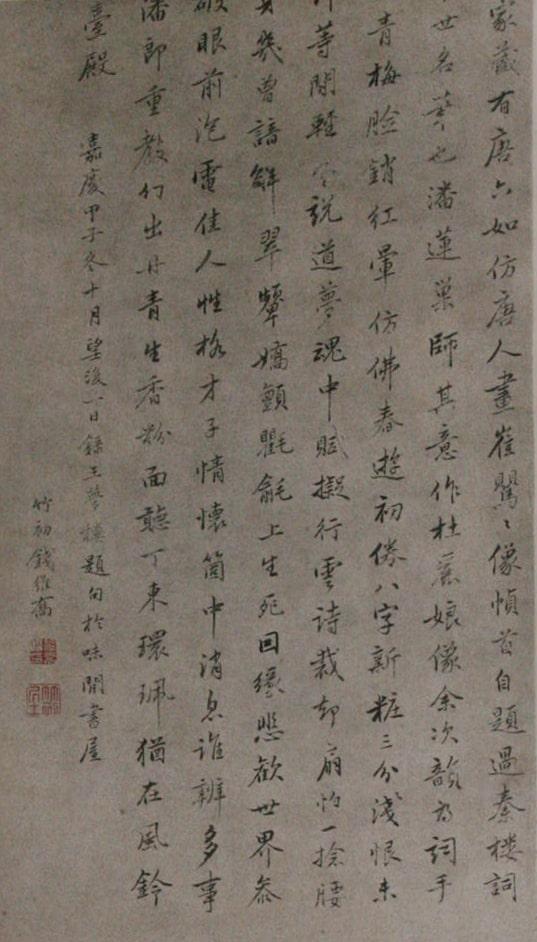 家藏有唐六如仿唐人畫崔鶯〻像幀首自題過秦樓詞
世名筆也潘蓮巢師其意作杜麗娘像余次韻為詞手
青梅臉銷紅暈仿佛春遊初倦八字新粧三分淺恨未
等閒輕 說道夢魂中賦擬行雲詩裁却扇怕一捻腰
幾曾諳解翠顰嬌顫氍毹上生死回緣悲歡世界參
破眼前泡電佳人性格才子情懷箇中消息誰辨多事
潘郎重教幻出丹青生香粉面聽丁東環珮猶在風鈴
臺殿
嘉慶甲子冬十月望後一日錄王夢樓題句於味閒書屋
竹初錢維喬